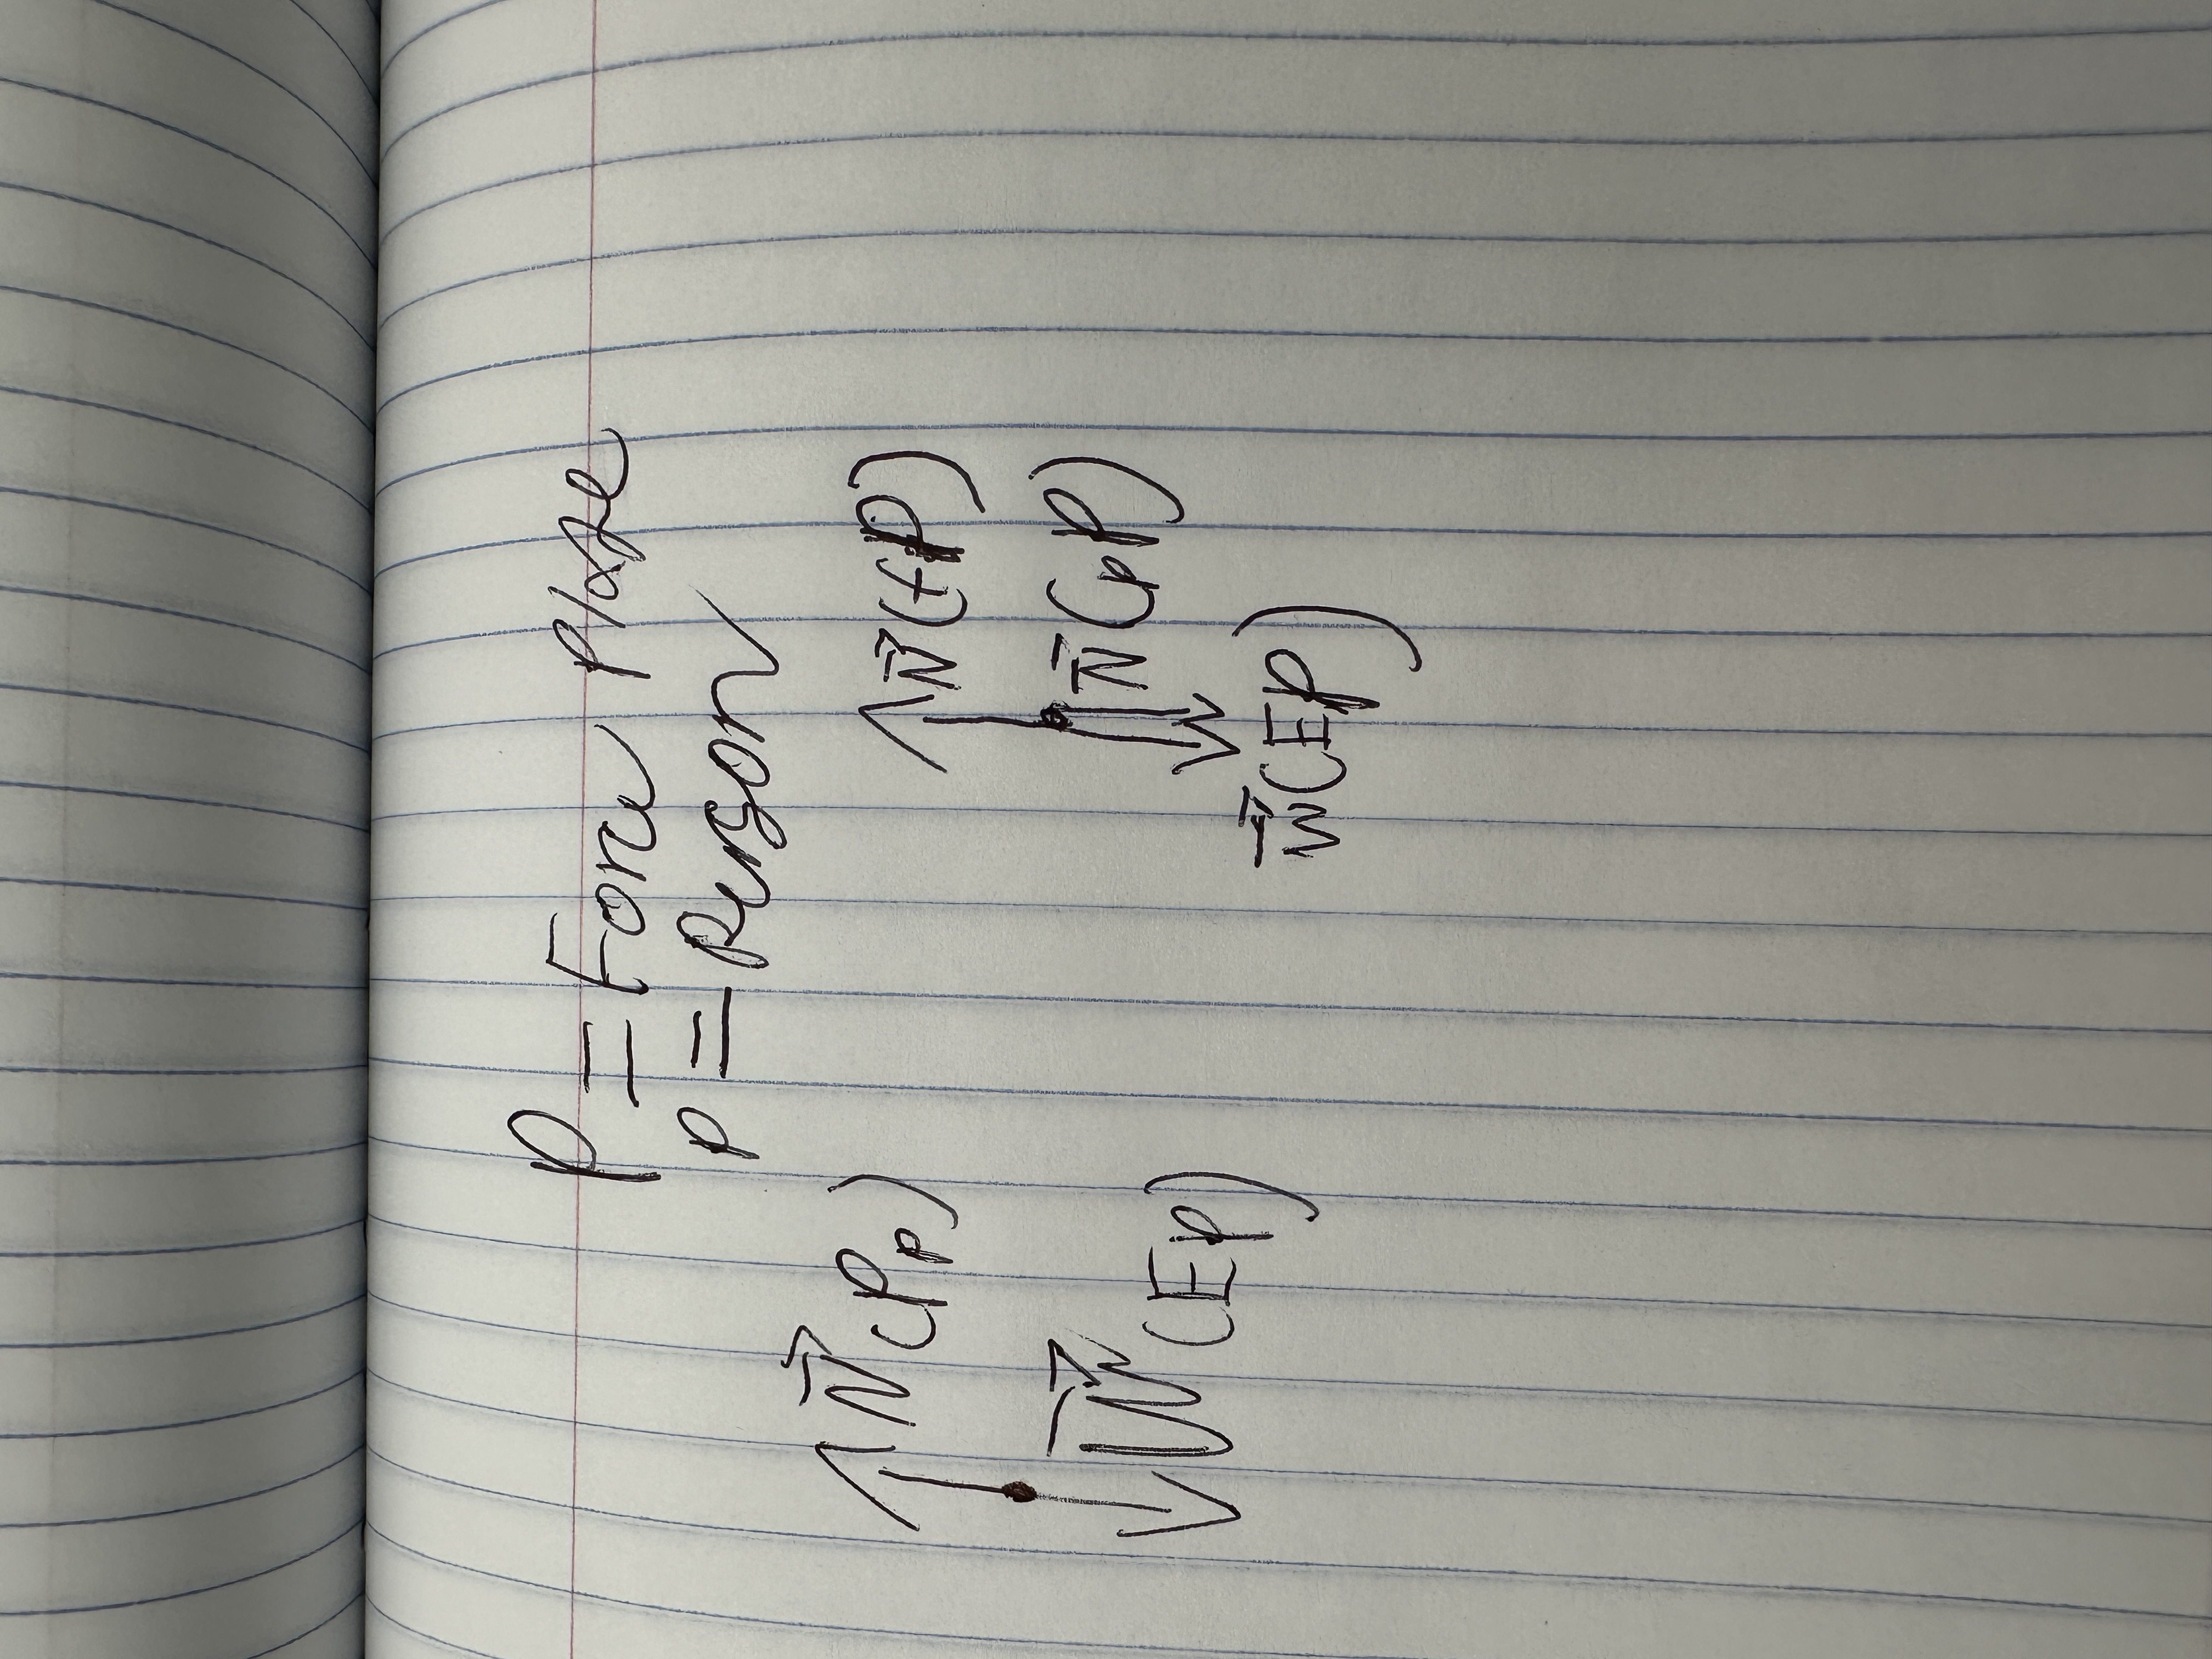 P = Force Plate
p = Person
N⃗ (Pp)
W⃗ (Ep)
N⃗ (fP)
N⃗ (pP)
W⃗ (EP)